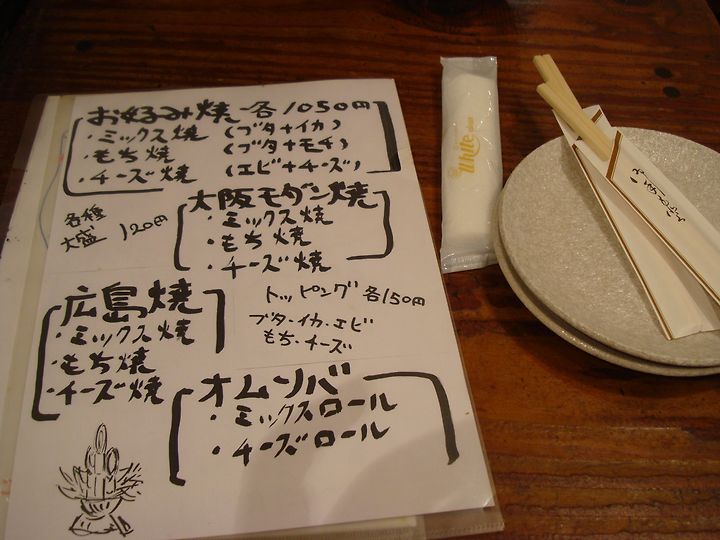 お好み焼 各1050円
・ミックス焼 (ブタ+イカ)
・もち焼 (ブタ+モチ)
・チーズ焼 (エビ+チーズ)
大阪モダン焼
・ミックス焼
・もち焼
・チーズ焼
各種
大盛 120円
広島焼
・ミックス焼
・もち焼
・チーズ焼
トッピング 各150円
ブタ・イカ・エビ
もち・チーズ
オムソバ
・ミックスロール
・チーズロール
White